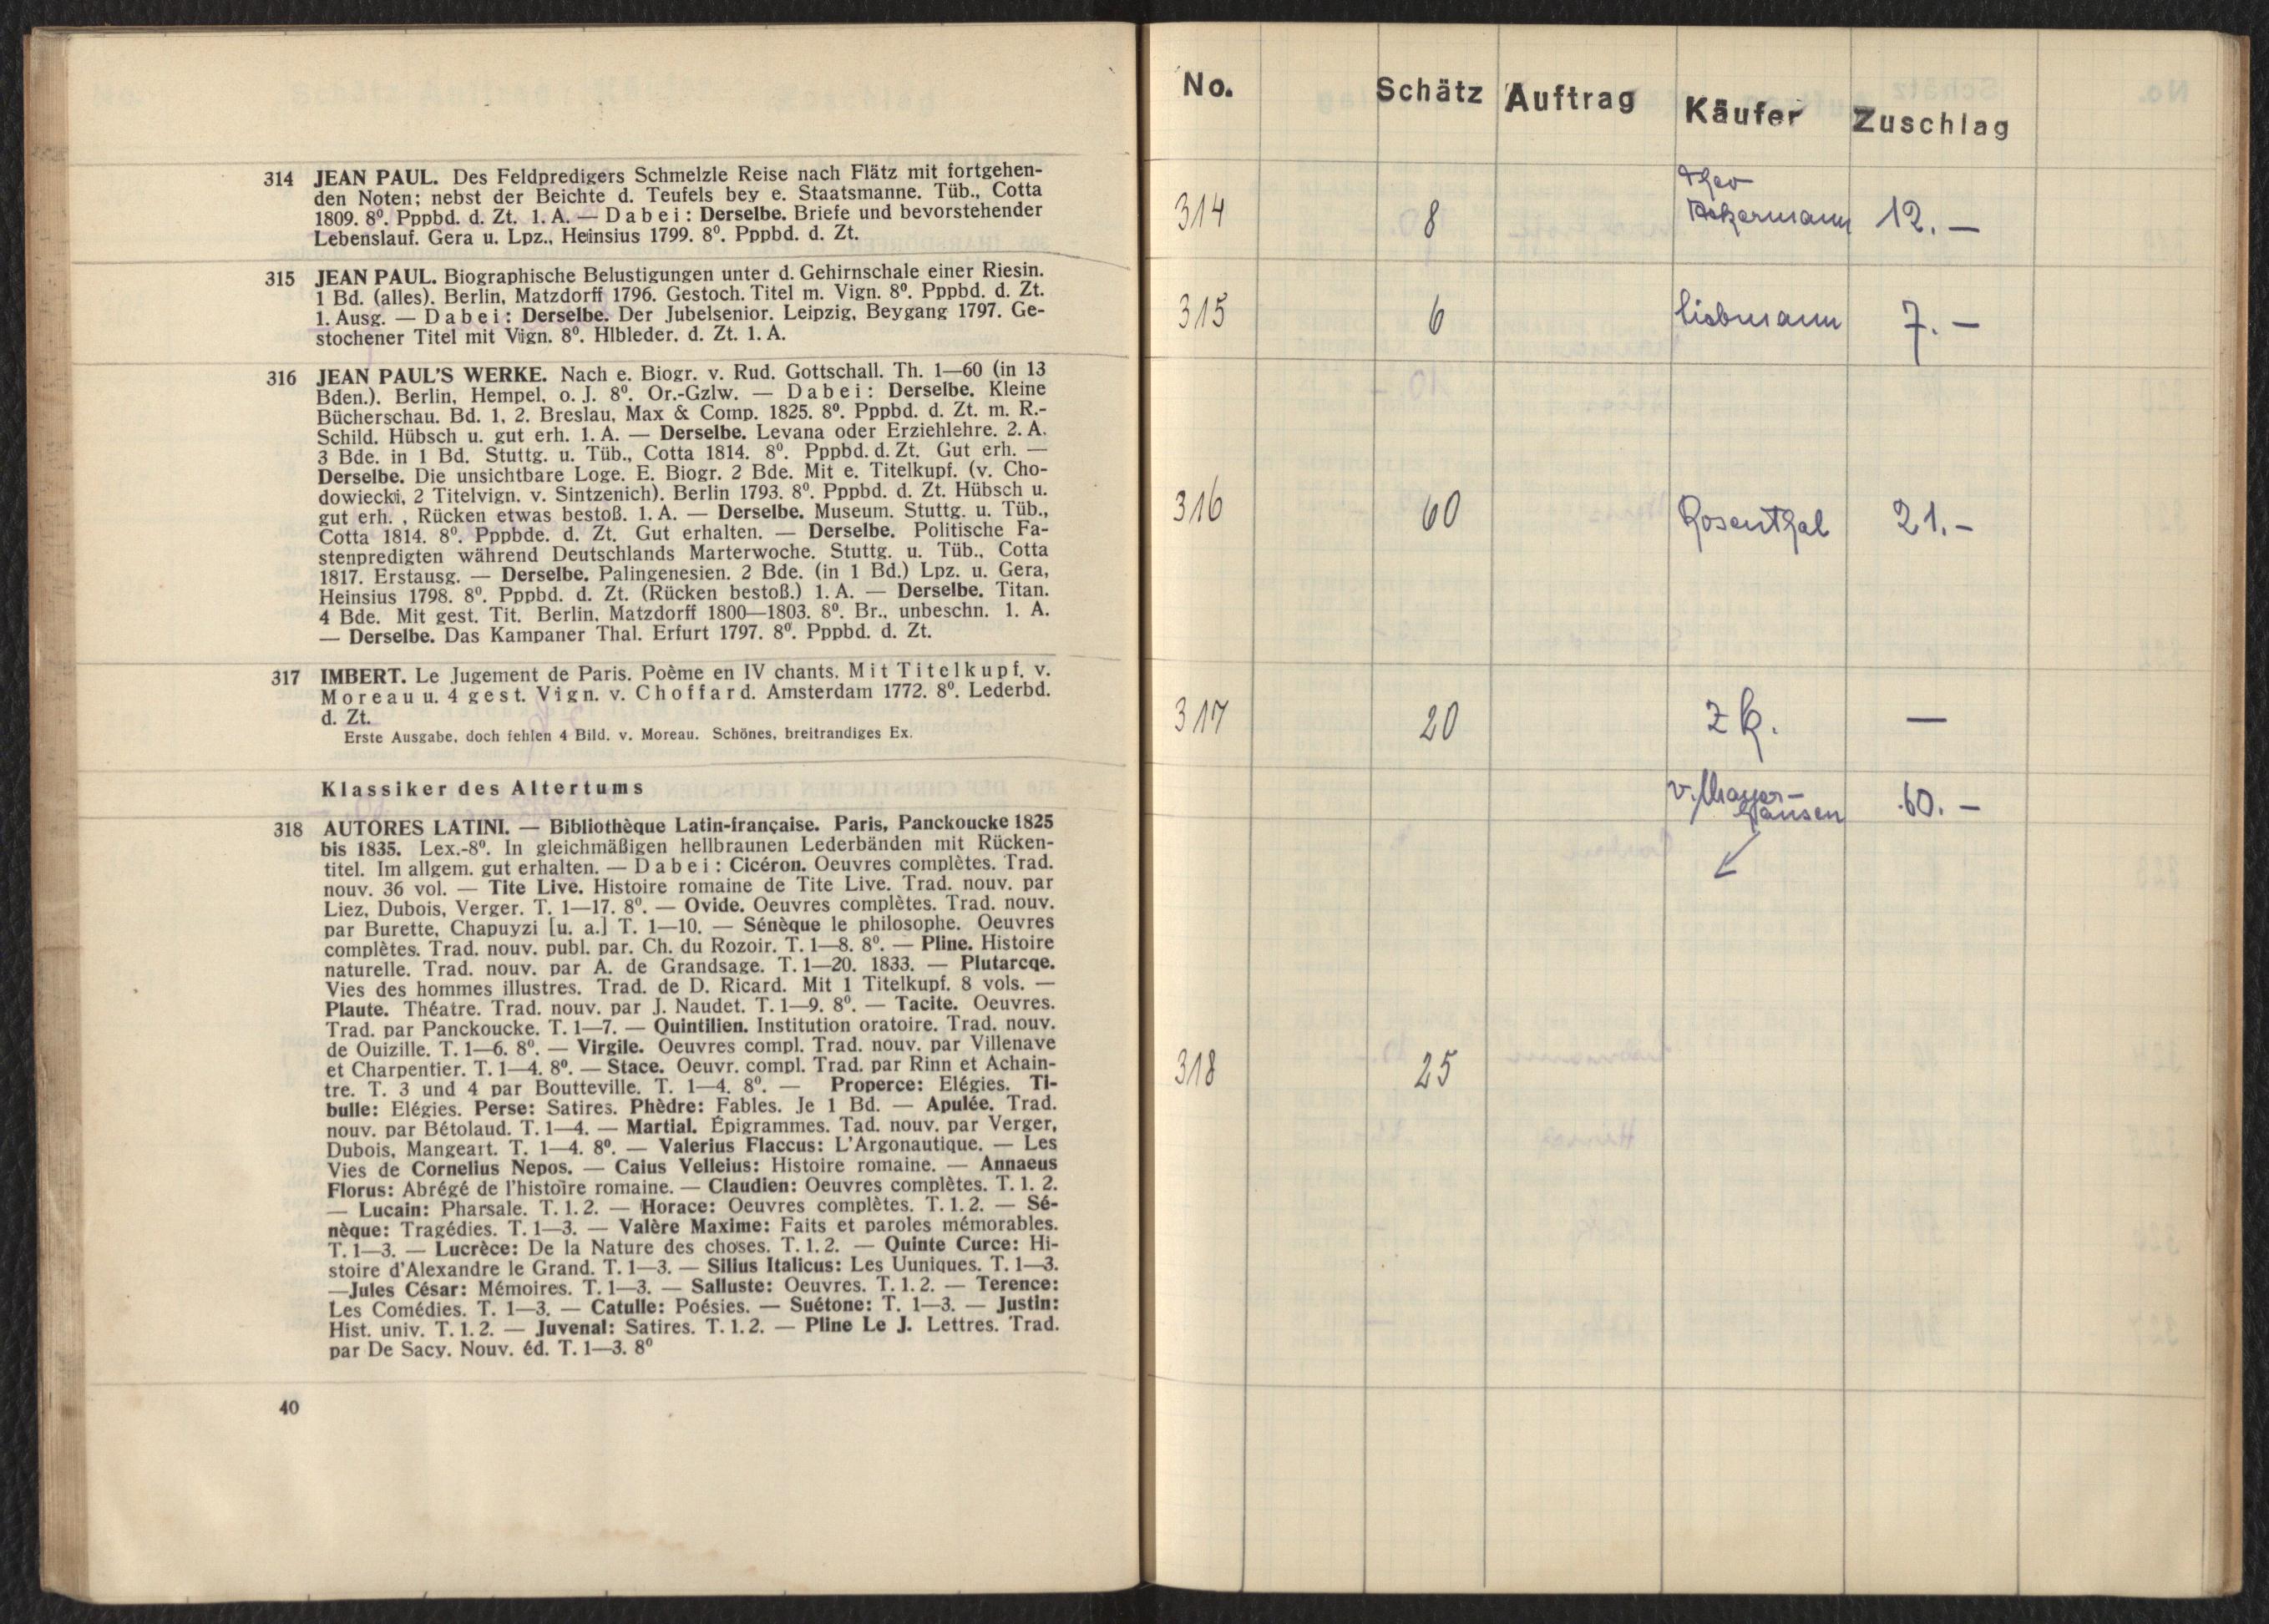 314 JEAN PAUL. Des Feldpredigers Schmelzle Reise nach Flätz mit fortgehen-
den Noten; nebst der Beichte d. Teufels bey e. Staatsmanne. Tüb., Cotta
1809. 8⁰. Pppbd. d. Zt. 1. A. — Dabei: Derselbe. Briefe und bevorstehender
Lebenslauf. Gera u. Lpz., Heinsius 1799. 8⁰. Pppbd. d. Zt.
315 JEAN PAUL. Biographische Belustigungen unter d. Gehirnschale einer Riesin.
1 Bd. (alles). Berlin, Matzdorff 1796. Gestoch. Titel m. Vign. 8⁰. Pppbd. d. Zt.
1. Ausg. — Dabei: Derselbe. Der Jubelsenior. Leipzig, Beygang 1797. Ge-
stochener Titel mit Vign. 8⁰. Hlbleder. d. Zt. 1. A.
316 JEAN PAUL'S WERKE. Nach e. Biogr. v. Rud. Gottschall. Th. 1—60 (in 13
Bden.). Berlin, Hempel, o. J. 8⁰. Or.-Gzlw. — Dabei: Derselbe. Kleine
Bücherschau. Bd. 1, 2. Breslau, Max & Comp. 1825. 8⁰. Pppbd. d. Zt. m. R.-
Schild. Hübsch u. gut erh. 1. A. — Derselbe. Levana oder Erziehlehre. 2. A.
3 Bde. in 1 Bd. Stuttg. u. Tüb., Cotta 1814. 8⁰. Pppbd. d. Zt. Gut erh. —
Derselbe. Die unsichtbare Loge. E. Biogr. 2 Bde. Mit e. Titelkupf. (v. Cho-
dowiecki, 2 Titelvign. v. Sintzenich). Berlin 1793. 8⁰. Pppbd. d. Zt. Hübsch u.
gut erh. , Rücken etwas bestoß. 1. A. — Derselbe. Museum. Stuttg. u. Tüb.,
Cotta 1814. 8⁰. Pppbde. d. Zt. Gut erhalten. — Derselbe. Politische Fa-
stenpredigten während Deutschlands Marterwoche. Stuttg. u. Tüb., Cotta
1817. Erstausg. — Derselbe. Palingenesien. 2 Bde. (in 1 Bd.) Lpz. u. Gera,
Heinsius 1798. 8⁰. Pppbd. d. Zt. (Rücken bestoß.) 1. A. — Derselbe. Titan.
4 Bde. Mit gest. Tit. Berlin, Matzdorff 1800—1803. 8⁰. Br., unbeschn. 1. A.
— Derselbe. Das Kampaner Thal. Erfurt 1797. 8⁰. Pppbd. d. Zt.
317 IMBERT. Le Jugement de Paris. Poème en IV chants. Mit Titelkupf. v.
Moreau u. 4 gest. Vign. v. Choffard. Amsterdam 1772. 8⁰. Lederbd.
d. Zt.
Erste Ausgabe, doch fehlen 4 Bild. v. Moreau. Schönes, breitrandiges Ex.
Klassiker des Altertums
318 AUTORES LATINI. — Bibliothèque Latin-française. Paris, Panckoucke 1825
bis 1835. Lex.-8⁰. In gleichmäßigen hellbraunen Lederbänden mit Rücken-
titel. Im allgem. gut erhalten. — Dabei: Cicéron. Oeuvres complètes. Trad.
nouv. 36 vol. — Tite Live. Histoire romaine de Tite Live. Trad. nouv. par
Liez, Dubois, Verger. T. 1—17. 8⁰. — Ovide. Oeuvres complètes. Trad. nouv.
par Burette, Chapuyzi [u. a.] T. 1—10. — Sénèque le philosophe. Oeuvres
complètes. Trad. nouv. publ. par. Ch. du Rozoir. T. 1—8. 8⁰. — Pline. Histoire
naturelle. Trad. nouv. par A. de Grandsage. T. 1—20. 1833. — Plutarcqe.
Vies des hommes illustres. Trad. de D. Ricard. Mit 1 Titelkupf. 8 vols. —
Plaute. Théatre. Trad. nouv. par J. Naudet. T. 1—9. 8⁰. — Tacite. Oeuvres.
Trad. par Panckoucke. T. 1—7. — Quintilien. Institution oratoire. Trad. nouv.
de Ouizille. T. 1—6. 8⁰. — Virgile. Oeuvres compl. Trad. nouv. par Villenave
et Charpentier. T. 1—4. 8⁰. — Stace. Oeuvr. compl. Trad. par Rinn et Achain-
tre. T. 3 und 4 par Boutteville. T. 1—4. 8⁰. — Properce: Elégies. Ti-
bulle: Elégies. Perse: Satires. Phèdre: Fables. Je 1 Bd. — Apulée. Trad.
nouv. par Bétolaud. T. 1—4. — Martial. Épigrammes. Tad. nouv. par Verger,
Dubois, Mangeart. T. 1—4. 8⁰. — Valerius Flaccus: L'Argonautique. — Les
Vies de Cornelius Nepos. — Caius Velleius: Histoire romaine. — Annaeus
Florus: Abrégé de l'histoire romaine. — Claudien: Oeuvres complètes. T. 1. 2.
— Lucain: Pharsale. T. 1. 2. — Horace: Oeuvres complètes. T. 1. 2. — Sé-
nèque: Tragédies. T. 1—3. — Valère Maxime: Faits et paroles mémorables.
T. 1—3. — Lucrèce: De la Nature des choses. T. 1. 2. — Quinte Curce: Hi-
stoire d'Alexandre le Grand. T. 1—3. — Silius Italicus: Les Uuniques. T. 1—3.
—Jules César: Mémoires. T. 1—3. — Salluste: Oeuvres. T. 1. 2. — Terence:
Les Comédies. T. 1—3. — Catulle: Poésies. — Suétone: T. 1—3. — Justin:
Hist. univ. T. 1. 2. — Juvenal: Satires. T. 1. 2. — Pline Le J. Lettres. Trad.
par De Sacy. Nouv. éd. T. 1—3. 8⁰
40
No. Schätz Auftrag Käufer Zuschlag
Theo
314 8 Ackermann 12.—
315 6 Liebmann 7.—
316 60 Rosenthal 21.—
317 20 zk. —
v. Mayer- 60.—
hausen
318 25